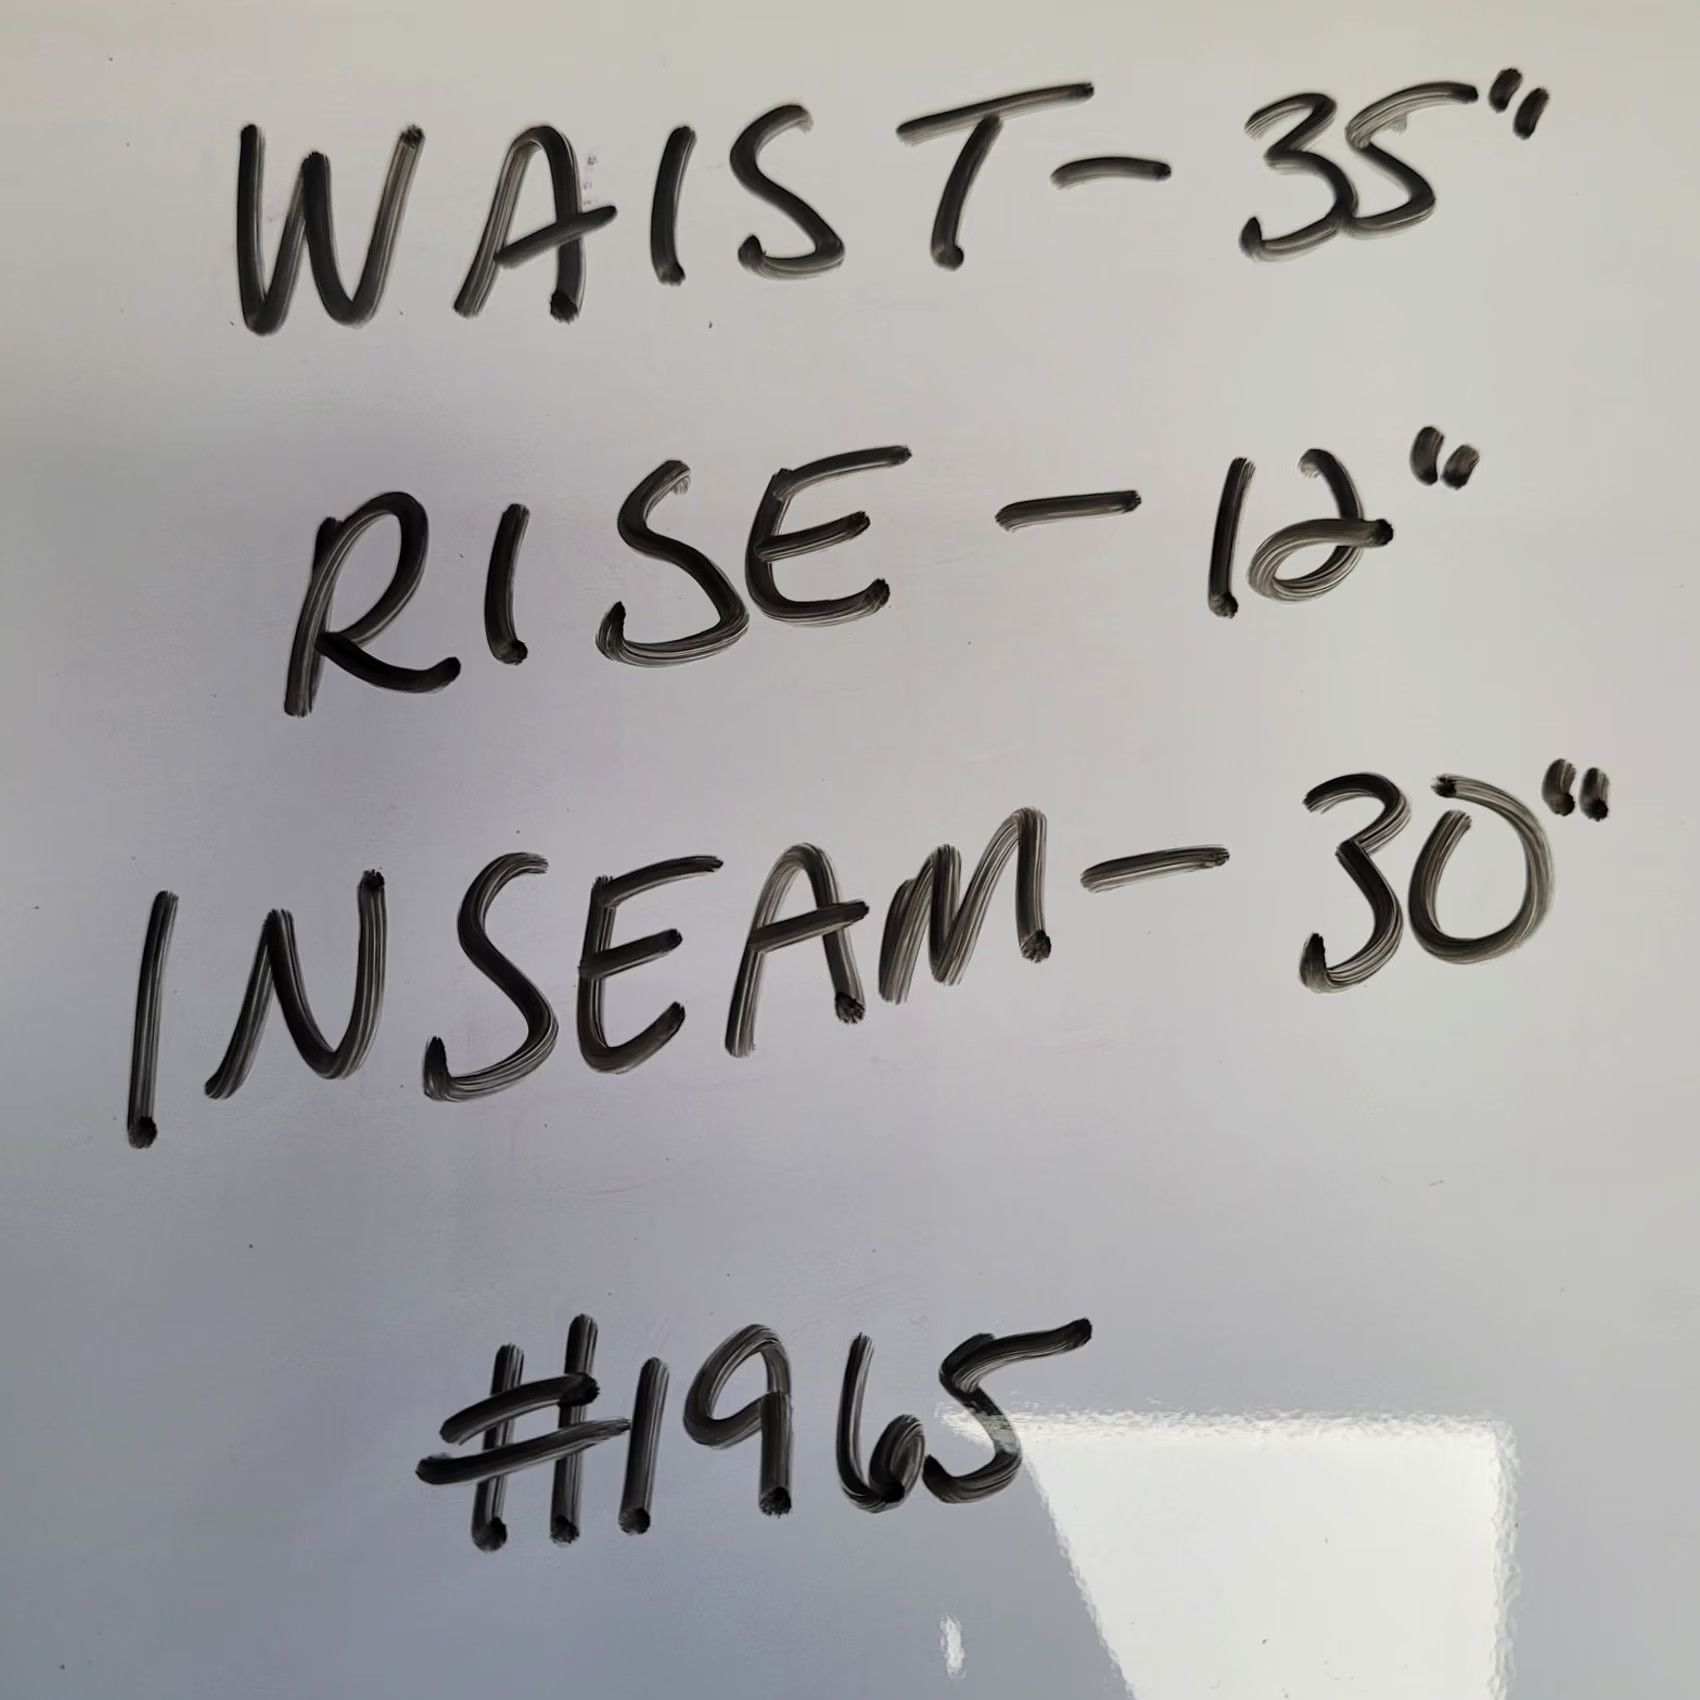 WAIST - 35"
RISE - 12"
INSEAM - 30"
#1965